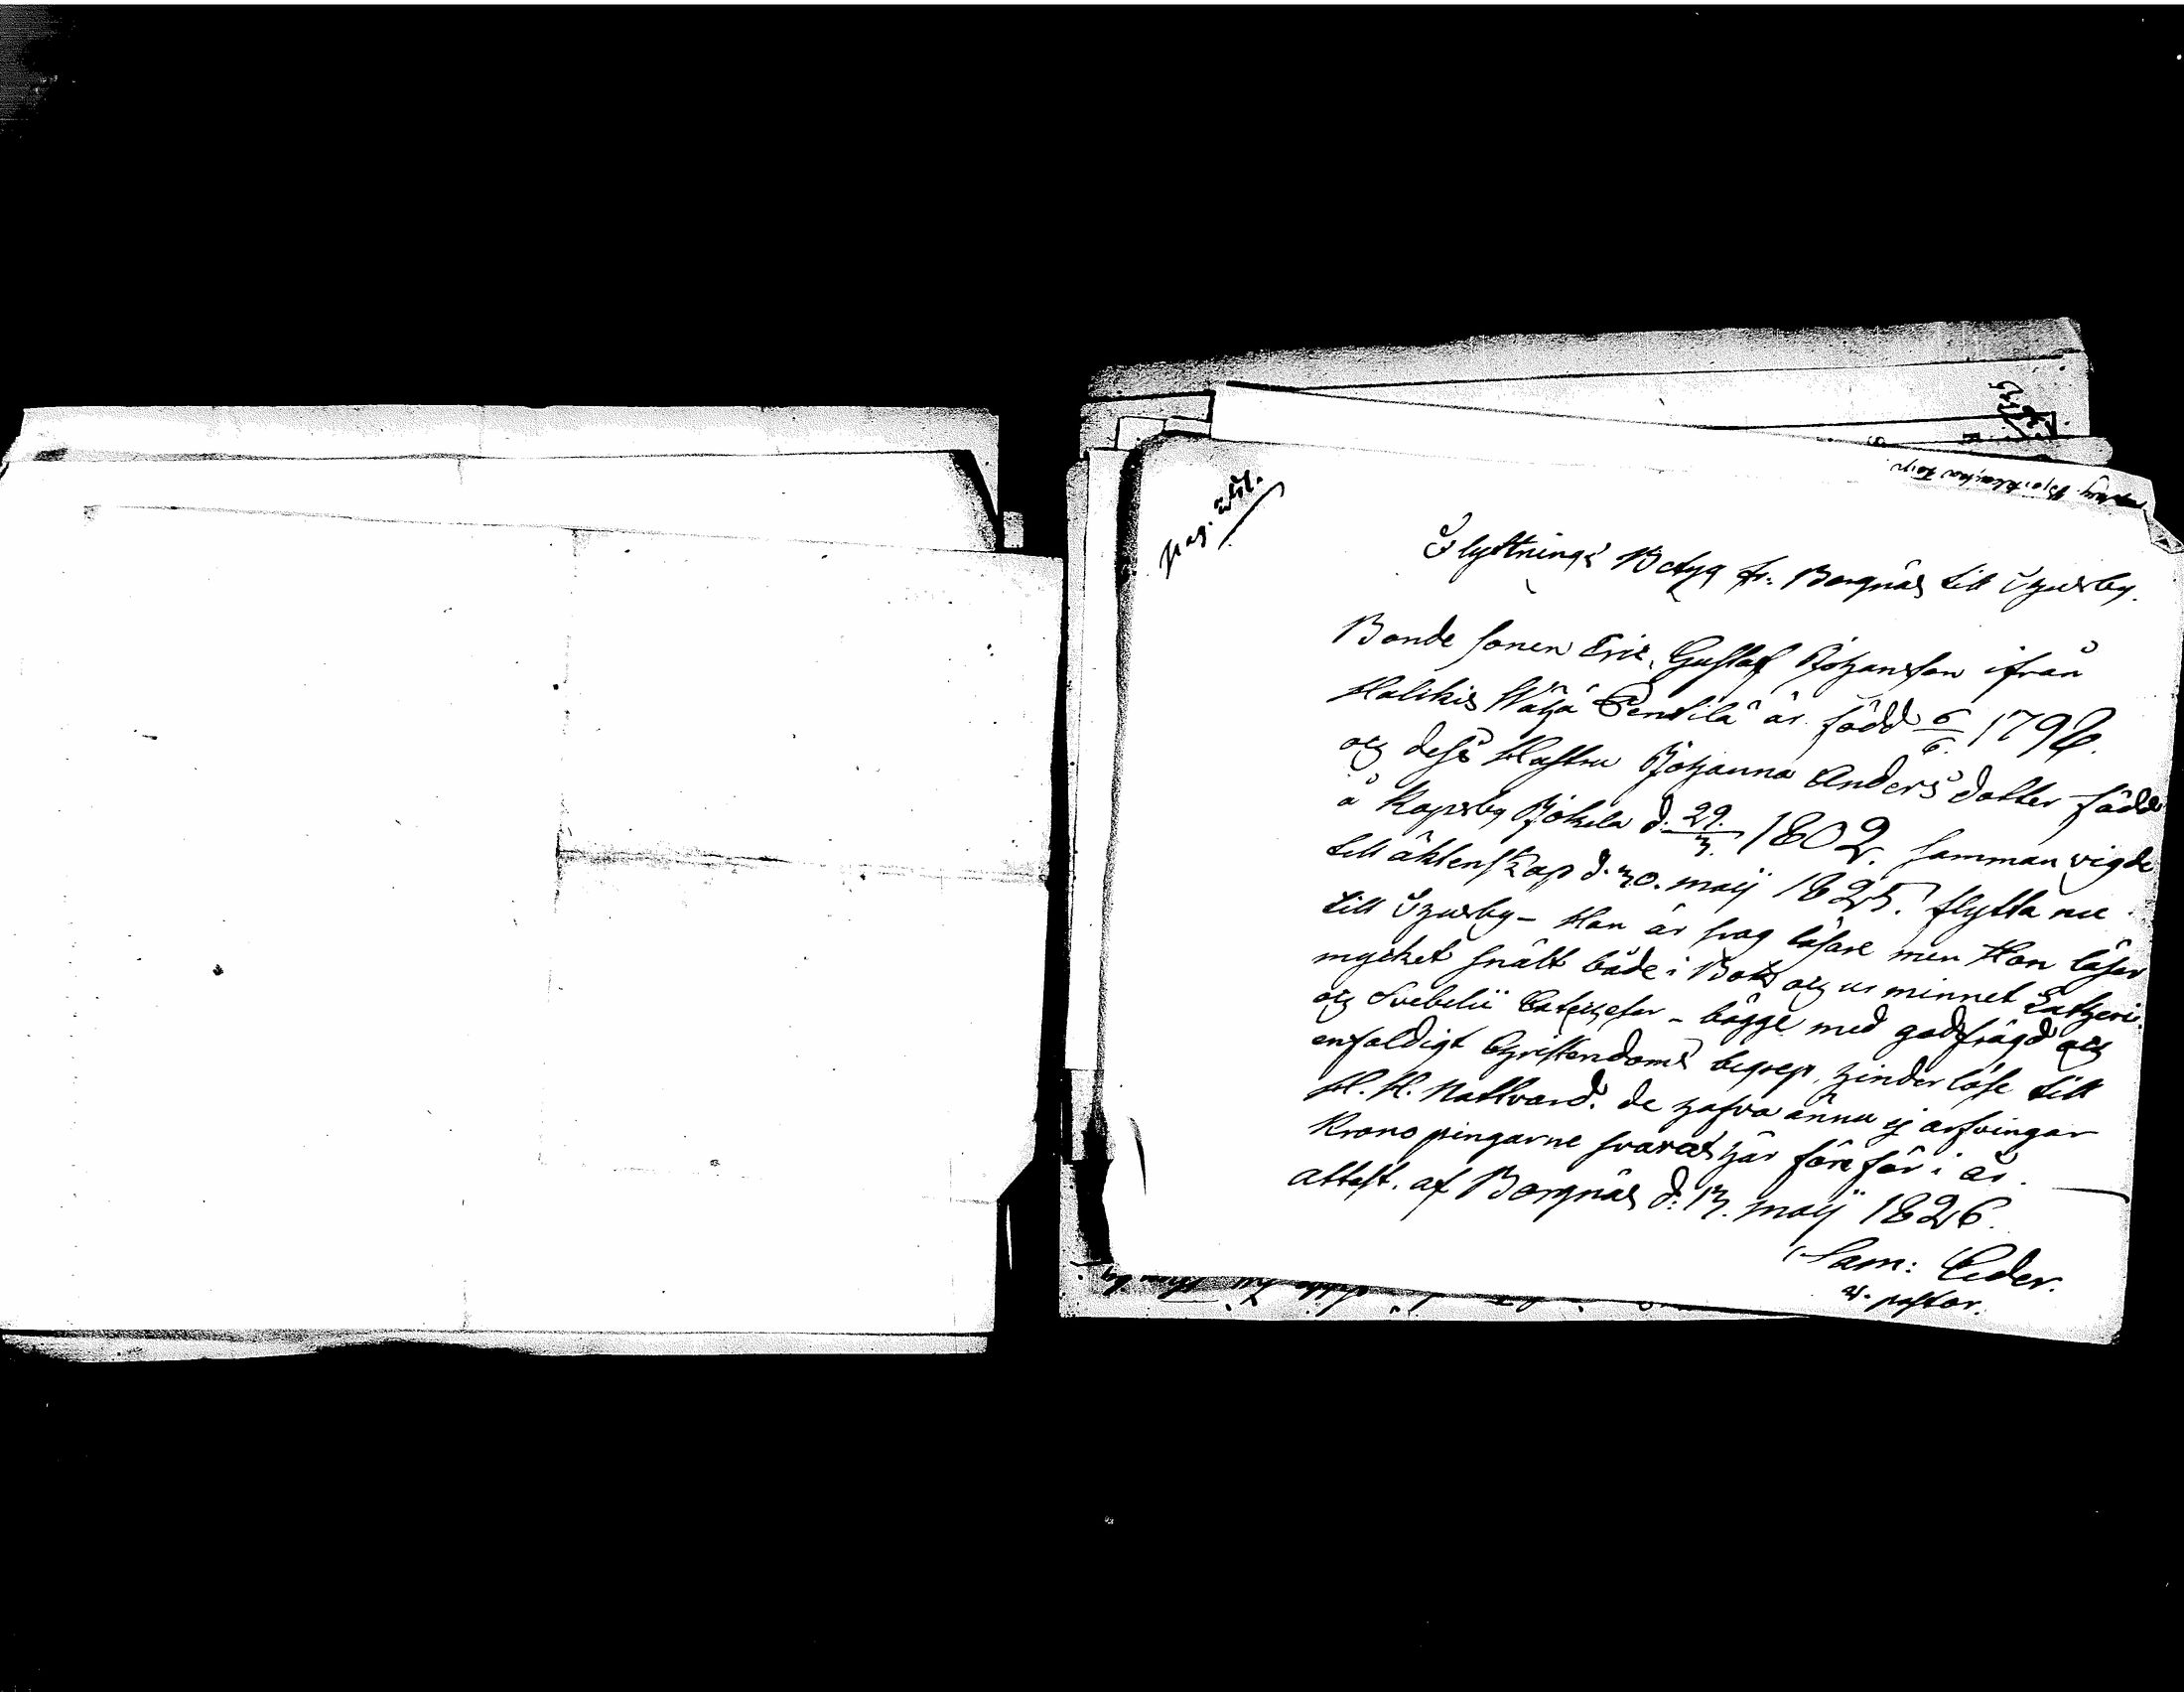 pag.
Flyttnings Betyg fr. Bergnäs till Uhusby.
Bonde sonen Eric Gustaf Johansson ifrån
Halikis Wähä Pentilä är född 6/6. 1796.
och dess Hustru Johanna Anders dotter född
å Kapsby Jokela d. 29./3. 1802. samman vigde
till äktenskap d. 30. maij 1825. flytta nu
till - Han är svag läsare men Hon läser
mycket snält både i Bok och ur minnet Lutheri
och Svebelii Catecheser - bägge med godt frägd och
enfaldigt Christendoms begrep, hinderlöse till
H. H. Nattvard. de hafva ännu ej arfvingar
Krono pingarne svarat här före för i år.
attest. af Bergnäs d: 13. maij 1826.
Sam: Ceder.
v. pastor.